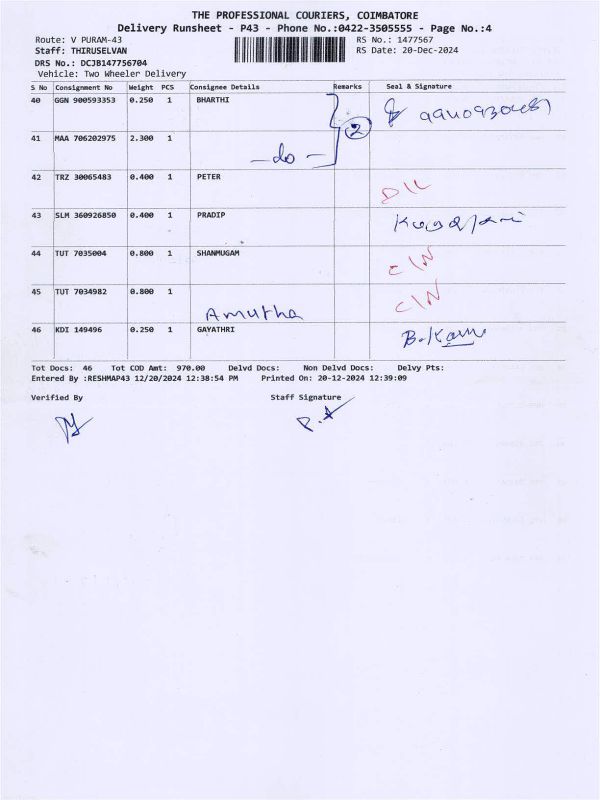 THE PROFESSIONAL COURIERS, COIMBATORE
Delivery Runsheet - P43 - Phone No.:0422-3505555 - Page No.:4
Route: V PURAM-43 RS No.: 1477567
Staff: THIRUSELVAN RS Date: 20-Dec-2024
DRS No.: DCJB147756704
Vehicle: Two Wheeler Delivery
S No Consignment No Weight PCS Consignee Details Remarks Seal & Signature
40 GGN 900593353 0.250 1 BHARTHI
2
41 MAA 706202975 2.300 1
-do-
42 TRZ 30065483 0.400 1 PETER
43 SLM 360926850 0.400 1 PRADIP
44 TUT 7035004 0.800 1 SHANMUGAM
C/N
45 TUT 7034982 0.800 1
Amutha C/N
46 KDI 149496 0.250 1 GAYATHRI
Tot Docs: 46 Tot COD Amt: 970.00 Delvd Docs: Non Delvd Docs: Delvy Pts:
Entered By :RESHMAP43 12/20/2024 12:38:54 PM Printed On: 20-12-2024 12:39:09
Verified By Staff Signature